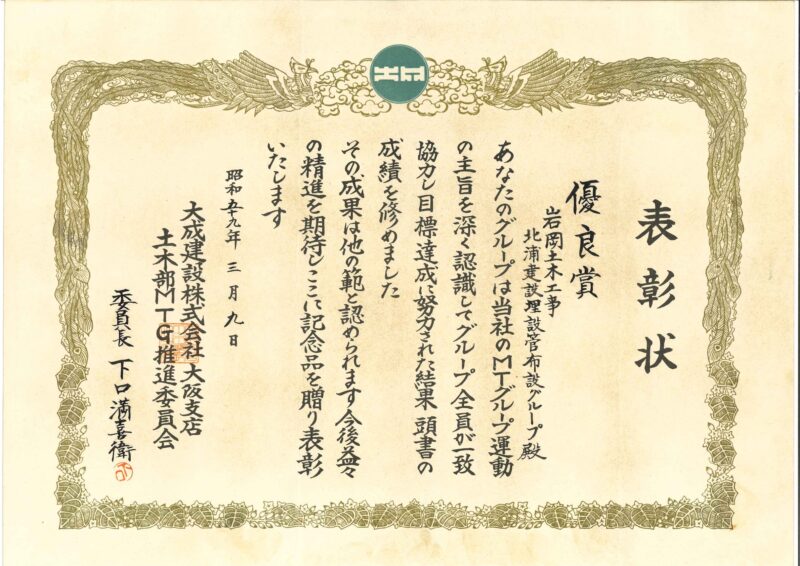 表彰状
優良賞
岩岡土木工事
北浦建設埋設管布設グループ殿
あなたのグループは当社のMTグループ運動
の主旨を深く認識してグループ全員が一致
協力し目標達成に努力された結果頭書の
成績を修めました
その成果は他の範と認められます今後益々
の精進を期待しここに記念品を贈り表彰
いたします
昭和五十九年三月九日
大成建設株式会社大阪支店
土木部MTG推進委員会
委員長 下口満喜衛